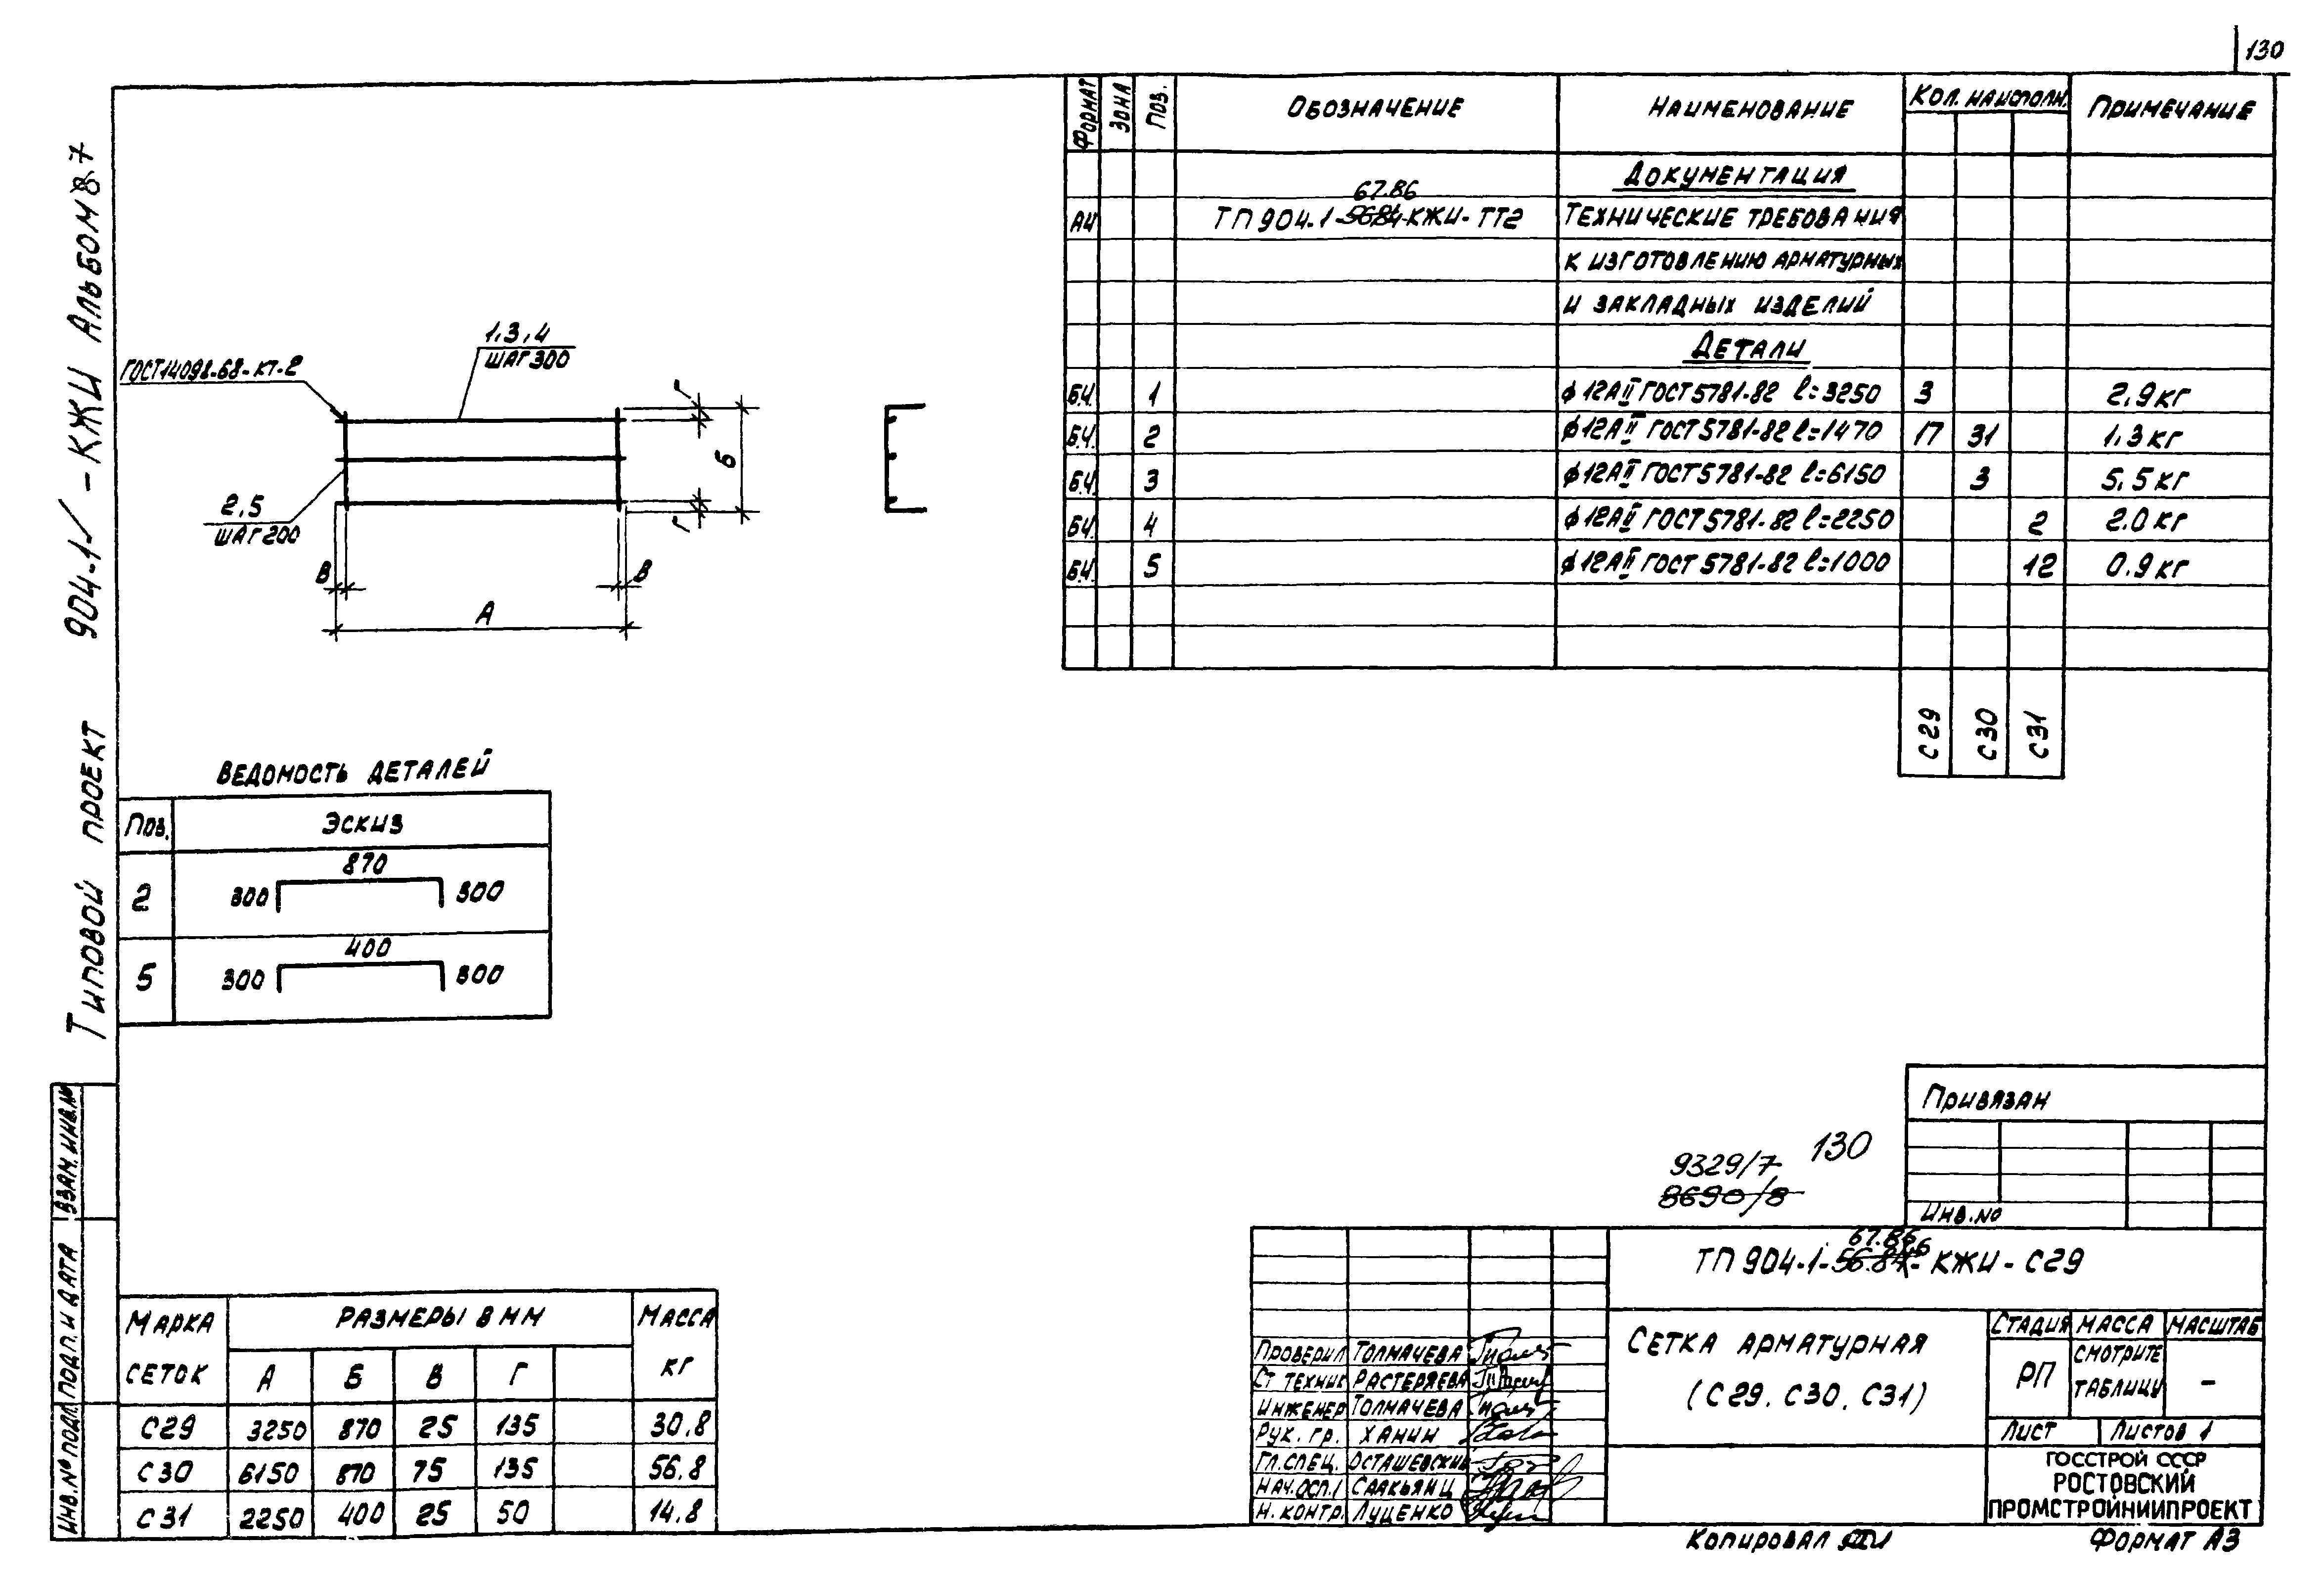 130
Типовой проект 904-1/ -КЖИ Альбом 8.7
Формат Зона Поз. Обозначение Наименование Кол. на исполн. Примечание
Документация
67.86
А4 ТП 904-1-56.84-КЖИ-ТТ2 Технические требования
к изготовлению арматурных
и закладных изделий
Детали
Б.Ч. 1 ϕ12АII ГОСТ 5781-82 ℓ=3250 3 2,9 кг
Б.Ч. 2 ϕ12АII ГОСТ 5781-82 ℓ=1470 17 31 1,3 кг
Б.Ч. 3 ϕ12АII ГОСТ 5781-82 ℓ=6150 3 5,5 кг
Б.Ч. 4 ϕ12АII ГОСТ 5781-82 ℓ=2250 2 2.0 кг
Б.Ч. 5 ϕ12АII ГОСТ 5781-82 ℓ=1000 12 0.9 кг
С29 С30 С31
ГОСТ 14098-68-КТ-2
1,3,4
шаг 300
2,5
шаг 200
Г
Б
Г
В
В
А
Ведомость деталей
Поз. Эскиз
870
2 300 300
400
5 300 300
Марка сеток Размеры в мм Масса кг
А Б В Г
С29 3250 870 25 135 30,8
С30 6150 870 75 135 56,8
С31 2250 400 25 50 14,8
Взам. инв. №
Подп. и дата
Инв. № подл.
Привязан
Инв. №
9329/7 130
8690/8
67.86
ТП 904-1-56.84-КЖИ-С29
Проверил Толмачева
Ст техник Растеряева
Инженер Толмачева
Рук. гр. Ханин
Гл. спец. Осташевский
Нач. ОСП.1 Саакьянц
Н. контр. Луценко
Сетка арматурная
(С29, С30, С31)
Стадия Масса Масштаб
РП Смотрите таблицу –
Лист Листов 1
ГОССТРОЙ СССР
РОСТОВСКИЙ
ПРОМСТРОЙНИИПРОЕКТ
Копировал
Формат А3